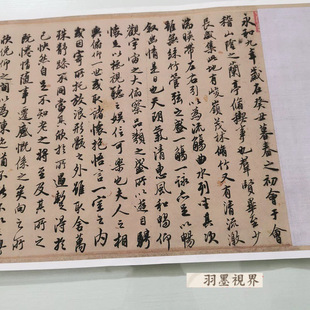 永和九年歲在癸丑暮春之初會于會
稽山陰之蘭亭脩禊事也羣賢畢至少
長咸集此地有峻嶺茂林脩竹又有清流激
湍暎帶左右引以為流觴曲水列坐其次
雖無絲竹管弦之盛一觴一詠亦足以暢
敘幽情是日也天朗氣清惠風和暢仰
觀宇宙之大俯察品類之盛所以遊目騁
懷足以極視聽之娛信可樂也夫人之相
與俯仰一世或取諸懷抱悟言一室之內
或因寄所托放浪形骸之外雖取舍萬
殊靜躁不同當其欣於所遇暫得於
己快然自足不知老之將至及其所之
既惓情隨事遷感慨係之矣向之所
欣俛仰之間以為陳迹猶不
羽墨視界